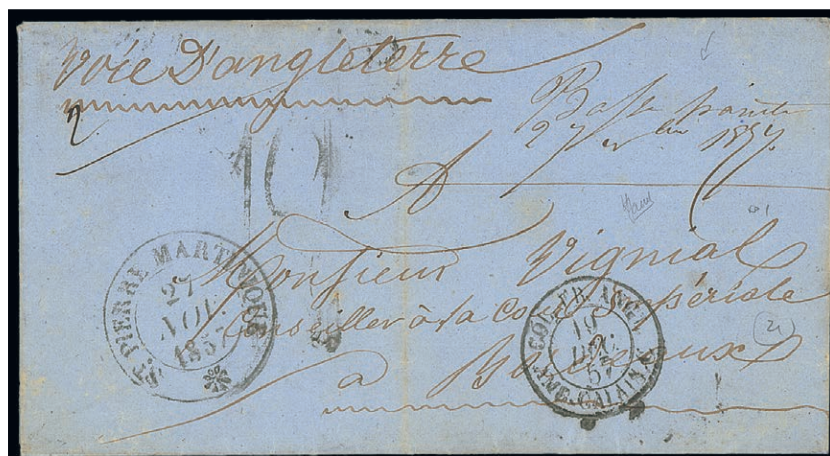 Voie D'angleterre
Basse pointe
27 1857
2
10
A
Monsieur Vignial
Conseiller à la Cour impériale
à Bordeaux
ST PIERRE MARTINIQUE
27
NOV
1857
COL. FR. ANGL.
DEC
57
AMB. CALAIS
21